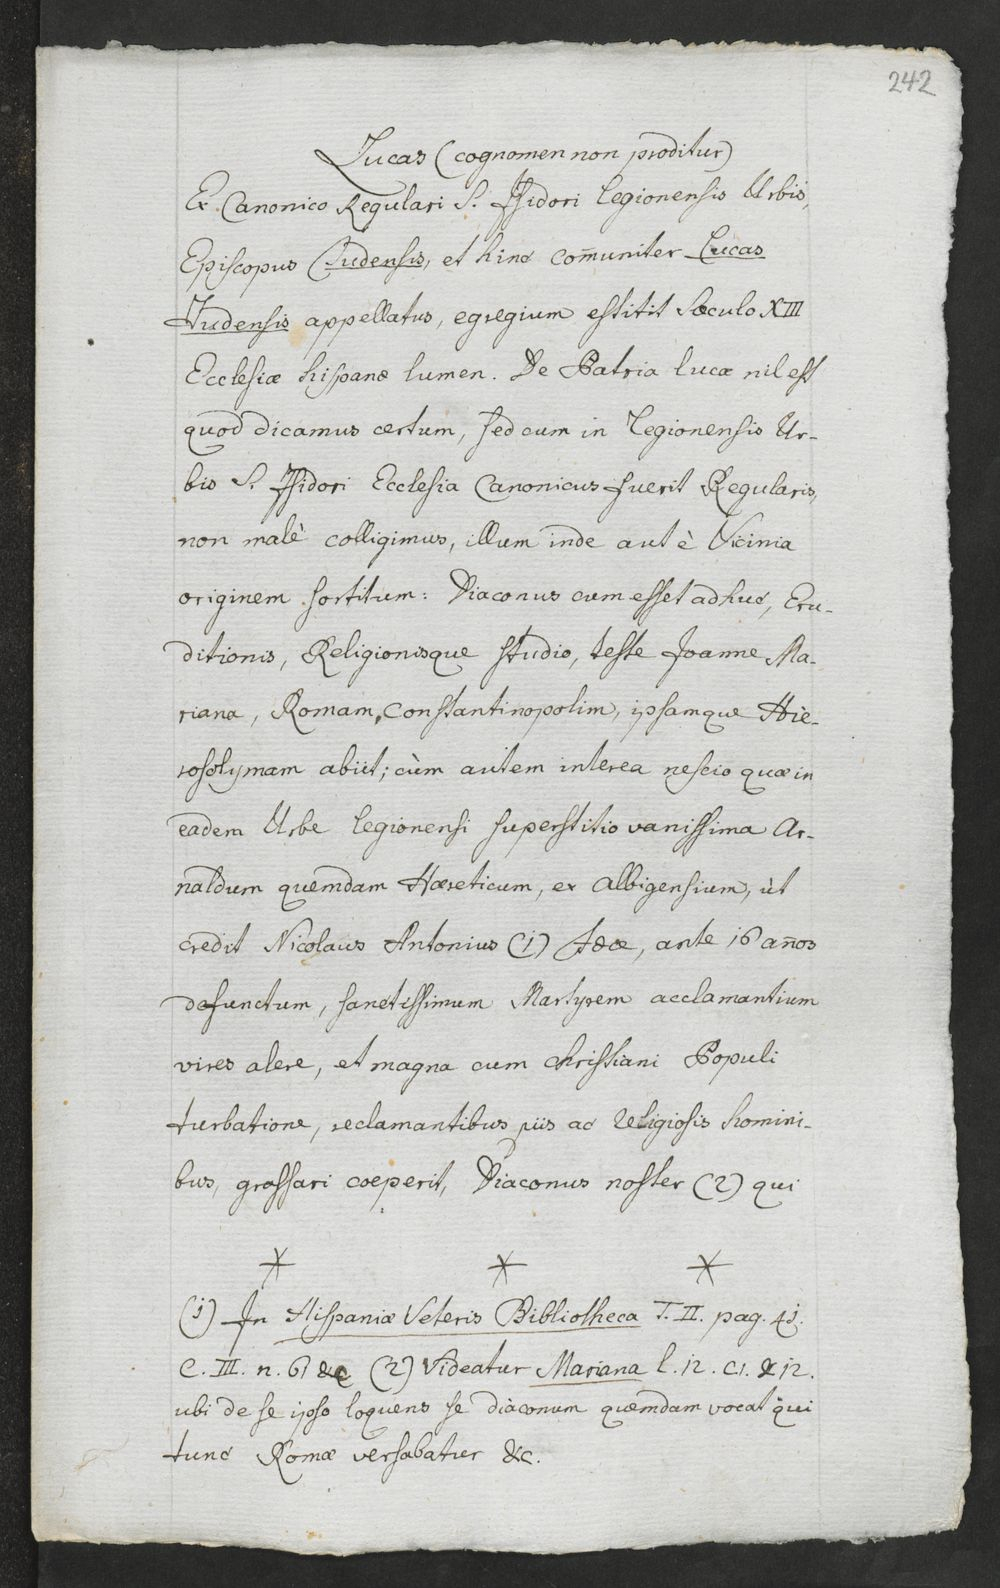 242
Lucas (cognomen non proditur)
Ex Canonico Regulari S. Isidori Legionensis Urbis,
Episcopus Tudensis, et hinc com̃uniter Lucas
Tudensis appellatus, egregium estitit Sæculo XIII
Ecclesiæ hispanæ lumen. De Patria Lucæ nil est
quod dicamus certum, sed cum in Legionensis Ur-
bis S. Isidori Ecclesia Canonicus fuerit Regularis,
non malè colligimus, illum inde aut è Vicinia
originem sortitum: Diaconus cum esset adhuc, Eru-
ditionis, Religionisque studio, teste Joanne Ma-
riana, Romam, Constantinopolim, ipsamque Hie-
rosolymam abiit; cùm autem interea nescio quæ in
eadem Urbe Legionensi superstitio vanissima Ar-
naldum quemdam Hæreticum, ex Albigensium, ùt
credit Nicolaus Antonius (1) fæce, ante 16 años
defunctum, sanctissimum Martyrem acclamantium
vires alere, et magna cum christiani Populi
turbatione, reclamantibus piis ac religiosis homini-
bus, grassari coeperit, Diaconus noster (2) qui
(1) In Hispaniæ Veteris Bibliotheca T. II. pag. 41.
C. III. n. 61 &c (2) Videatur Mariana l. 12. C. 1. & 12.
ubi de se ipso loquens se diaconum quemdam vocat qui
tunc Romæ versabatur &c.